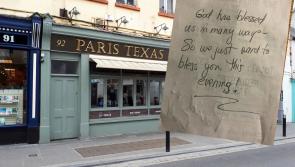 91
92 PARIS TEXAS
God has blessed
us in many ways -
So we just want to
bless you this
evening!